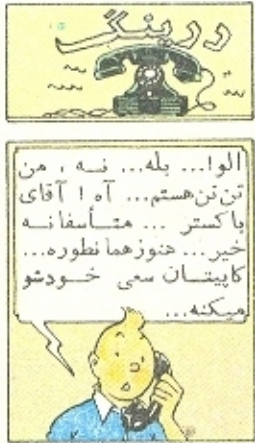 دررینگ
الو!... بله... نـه ، من
تن تن هستم... آه ! آقای
باکستر ... متـأسفانـه
خیر... هنوز همانطوره...
کاپیتـان سعی خـودشو
میکنه...